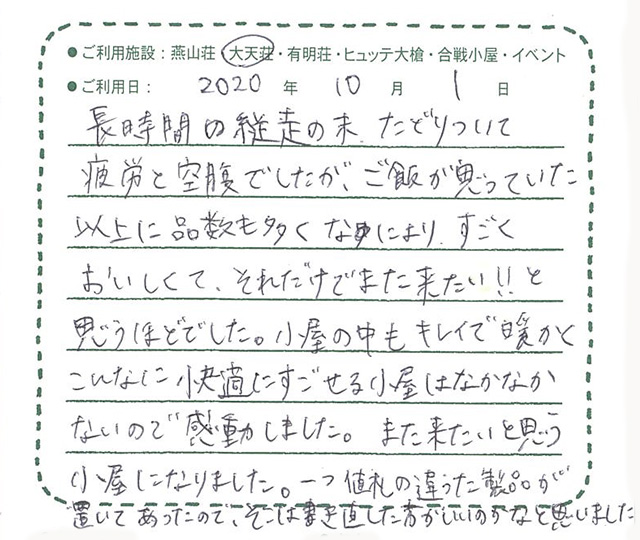 ● ご利用施設：燕山荘・大天荘・有明荘・ヒュッテ大槍・合戦小屋・イベント
● ご利用日： 2020 年 10 月 1 日
長時間の縦走の末、たどりついて
疲労と空腹でしたが、ご飯が思っていた
以上に品数も多くなにより、すごく
おいしくて、それだけでまた来たい!!と
思うほどでした。小屋の中もキレイで暖かく
こんなに快適にすごせる小屋はなかなか
ないので感動しました。また来たいと思う
小屋になりました。一つ値札の違うた製品が
置いてあったので、そこは書き直した方がいいのかなと思いました